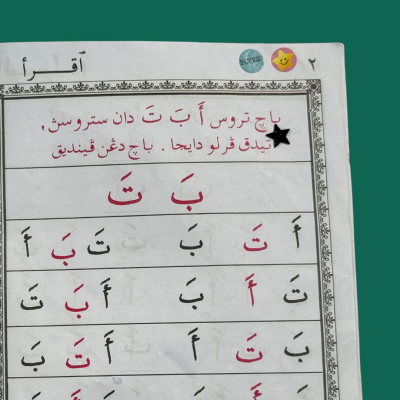 ٢ ٱقـــرأ
باچ تروس أَ بَ تَ دان ستروسڽ,
تيدق ڤرلو دايجا . باچ دڠن ڤينديق
بَ تَ
أَ تَ بَ تَ بَ أَ
تَ أَ بَ أَ بَ تَ
بَ تَ أَ أَ تَ بَ